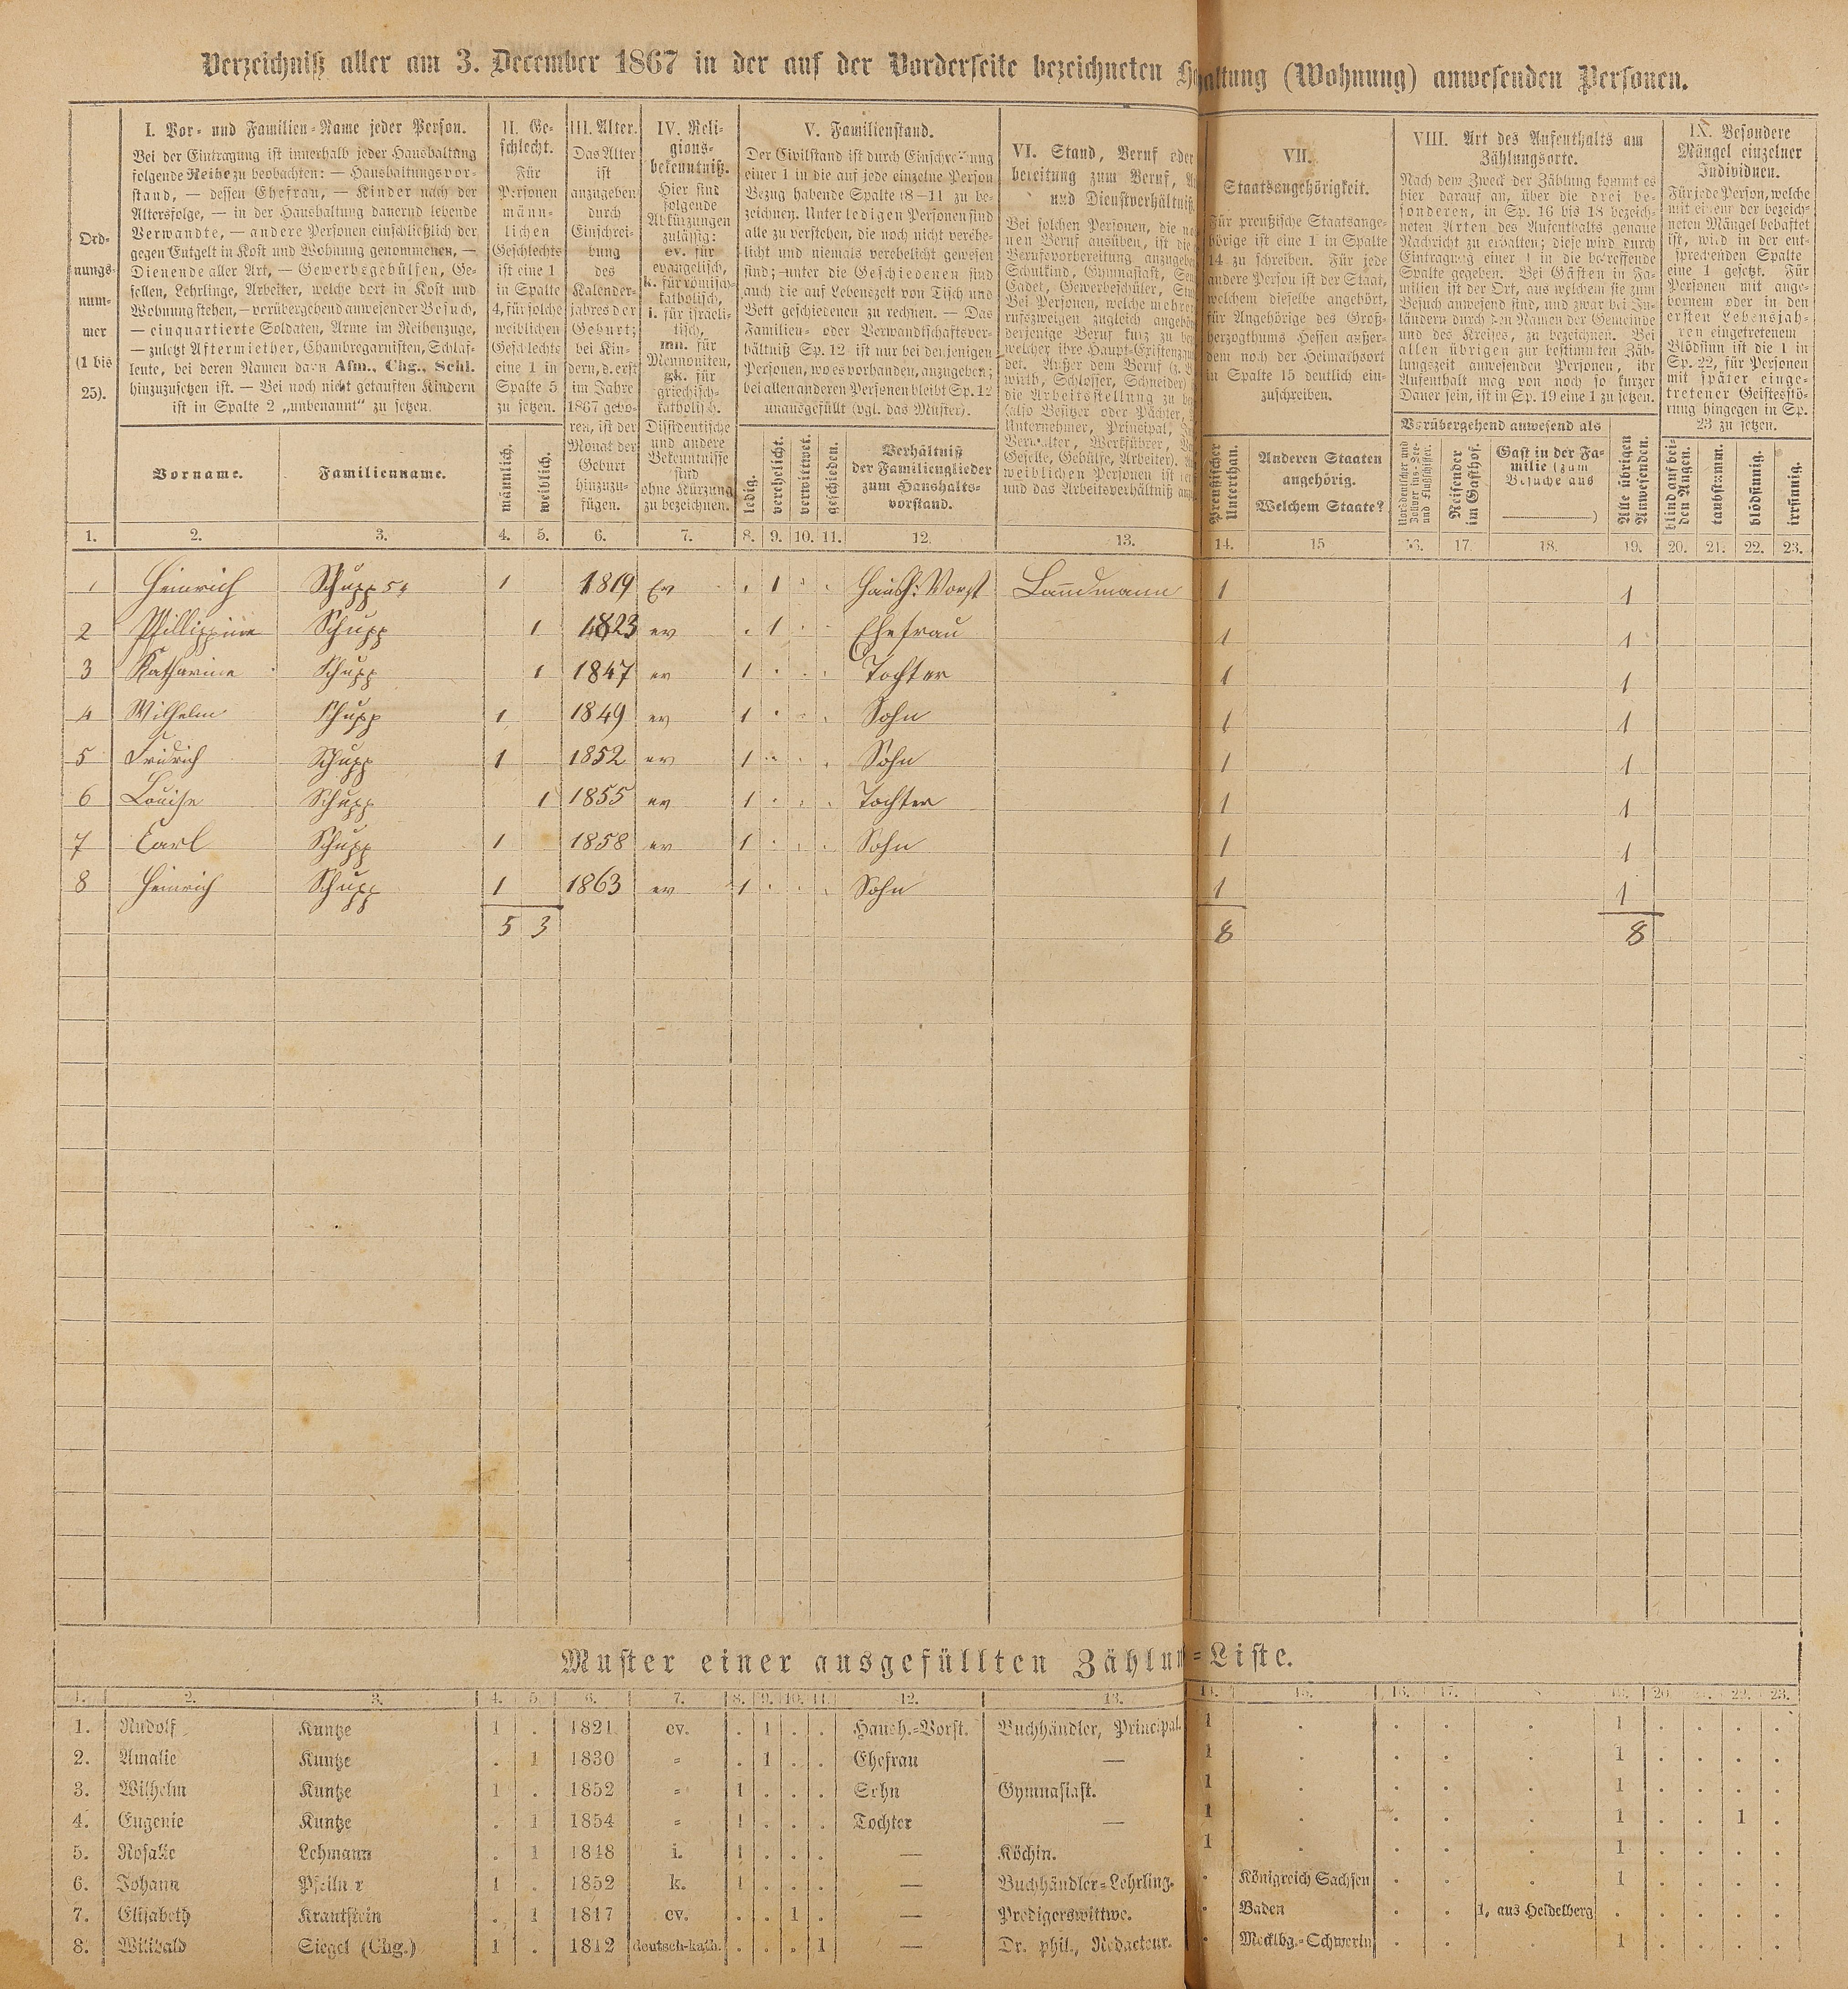 Verzeichniß aller am 3. December 1867 in der auf der Vorderseite bezeichneten Haltung (Wohnung) anwesenden Personen.
Ord-
nungs-
num-
mer
(1 bis
25).
I. Vor- und Familien-Name jeder Person.
Bei der Eintragung ist innerhalb jeder Haushaltung
folgende Reihe zu beobachten: — Haushaltungsvor-
stand, — dessen Ehefrau, — Kinder nach der
Altersfolge, — in der Haushaltung dauernd lebende
Verwandte, — andere Personen einschließlich der
gegen Entgelt in Kost und Wohnung genommenen, —
Dienende aller Art, — Gewerbsgehülfen, Ge-
sellen, Lehrlinge, Arbeiter, welche dort in Kost und
Wohnung stehen, — vorübergehend anwesender Besuch,
— einquartierte Soldaten, Arme im Reihenzuge,
— zuletzt Aftermiether, Chambregarnisten, Schlaf-
leute, bei deren Namen dann Afm., Chg., Schl.
hinzuzusetzen ist. — Bei noch nicht getauften Kindern
ist in Spalte 2 „unbenannt“ zu setzen.
Vorname. Familienname.
II. Ge-
schlecht.
Für
Personen
männ-
lichen
Geschlechts
ist eine 1
in Spalte
4, für solche
weiblichen
Geschlechts
eine 1 in
Spalte 5
zu setzen.
männlich. weiblich.
III. Alter.
Das Alter
ist
anzugeben
durch
Einschrei-
bung
des
Kalender-
jahres der
Geburt;
bei Kin-
dern, d. erst
im Jahre
1867 gebo-
ren, ist der
Monat der
Geburt
hinzuzu-
fügen.
IV. Reli-
gions-
bekenntniß.
Hier sind
folgende
Abkürzungen
zulässig:
ev. für
evangelisch,
k. für römisch-
katholisch,
i. für israeli-
tisch,
mn. für
Mennoniten,
gk. für
griechisch-
katholisch.
Dissidentische
und andere
Bekenntnisse
sind
ohne Kürzung
zu bezeichnen.
V. Familienstand.
Der Civilstand ist durch Einschreibung
einer 1 in die auf jede einzelne Person
Bezug habende Spalte (8—11) zu be-
zeichnen. Unter ledigen Personen sind
alle zu verstehen, die noch nicht verehe-
licht und niemals verehelicht gewesen
sind; unter die Geschiedenen sind
auch die auf Lebenszeit von Tisch und
Bett geschiedenen zu rechnen. — Das
Familien- oder Verwandtschaftsver-
hältniß Sp. 12 ist nur bei denjenigen
Personen, wo es vorhanden, anzugeben;
bei allen anderen Personen bleibt Sp. 12
unausgefüllt (vgl. das Muster).
ledig. verehelicht. verwittwet. geschieden.
Verhältniß
der Familienglieder
zum Haushalts-
vorstand.
VI. Stand, Beruf oder
bereitung zum Beruf,
und Dienstverhältniß
Bei solchen Personen, die
nen Beruf ausüben, ist die
Berufsvorbereitung anzugeben
Schulkind, Gymnasiast,
Cadet, Gewerbeschüler,
Bei Personen, welche mehre
rufszweigen zugleich angehö
derjenige Beruf kurz zu be
welcher ihre Haupt-Existenz
det. Außer dem Beruf (z. B.
wirth, Schlosser, Schneider)
die Arbeitsstellung zu be
(also Besitzer oder Pächter,
Unternehmer, Principal,
Verwalter, Werkführer,
Geselle, Gehülfe, Arbeiter).
weiblichen Personen ist
und das Arbeitsverhältniß
VII.
Staatsangehörigkeit.
Für preußische Staatsange-
hörige ist eine 1 in Spalte
14 zu schreiben. Für jede
andere Person ist der Staat,
welchem dieselbe angehört,
für Angehörige des Groß-
herzogthums Hessen außer-
dem noch der Heimathsort
in Spalte 15 deutlich ein-
zuschreiben.
Preußischer
Unterthan.
Anderen Staaten
angehörig.
Welchem Staate?
VIII. Art des Aufenthalts am
Zählungsorte.
Nach dem Zweck der Zählung kommt es
hier darauf an, über die drei be-
sonderen, in Sp. 16 bis 18 bezeich-
neten Arten des Aufenthalts genaue
Nachricht zu erhalten; diese wird durch
Eintragung einer 1 in die betreffende
Spalte gegeben. Bei Gästen in Fa-
milien ist der Ort, aus welchem sie zum
Besuch anwesend sind, und zwar bei In-
ländern durch den Namen der Gemeinde
und des Kreises, zu bezeichnen. Bei
allen übrigen zur bestimmten Zäh-
lungszeit anwesenden Personen, ihr
Aufenthalt mag von noch so kurzer
Dauer sein, ist in Sp. 19 eine 1 zu setzen.
Vorübergehend anwesend als
Norddeutscher und
Zollvereins-See-
und Flußschiffer.
Reisender
im Gasthof.
Gast in der Fa-
milie (zum
Besuche aus
)
Alle übrigen
Anwesenden.
IX. Besondere
Mängel einzelner
Individuen.
Für jede Person, welche
mit einem der bezeich-
neten Mängel behaftet
ist, wird in der ent-
sprechenden Spalte
eine 1 gesetzt. Für
Personen mit ange-
bornem oder in den
ersten Lebensjah-
ren eingetretenem
Blödsinn ist die 1 in
Sp. 22, für Personen
mit später einge-
tretener Geistesstö-
rung hingegen in Sp.
23 zu setzen.
blind auf bei-
den Augen.
taubstumm. blödsinnig. irrsinnig.
1. 2. 3. 4. 5. 6. 7. 8. 9. 10. 11. 12. 13. 14. 15 16. 17. 18. 19. 20. 21. 22. 23.
1 Heinrich Schupp 5r 1 1819 Ev . 1 . . Haush: Vorst Landmann 1 1
2 Phillippine Schupp 1 1823 ev . 1 . . Ehefrau 1 1
3 Katharina Schupp 1 1847 ev 1 . . . Tochter 1 1
4 Wilhelm Schupp 1 1849 ev 1 . . . Sohn 1 1
5 Fridrich Schupp 1 1852 ev 1 . . . Sohn 1 1
6 Louise Schupp 1 1855 ev 1 . . . Tochter 1 1
7 Carl Schupp 1 1858 ev 1 . . . Sohn 1 1
8 Heinrich Schupp 1 1863 ev 1 . . . Sohn 1 1
5 3 8 8
Muster einer ausgefüllten Zählun-Liste.
1. 2. 3. 4. 5. 6. 7. 8. 9. 10. 11. 12. 13. 14. 15. 16. 17. 19. 20. 22. 23.
1. Rudolf Kuntze 1 . 1821 ev. . 1 . . Haush.-Vorst. Buchhändler, Principal. 1 . . . . 1 . . . .
2. Amalie Kuntze . 1 1830 " . 1 . . Ehefrau — 1 . . . . 1 . . . .
3. Wilhelm Kuntze 1 . 1852 " 1 . . . Sohn Gymnasiast. 1 . . . . 1 . . . .
4. Eugenie Kuntze . 1 1854 " 1 . . . Tochter — 1 . . . . 1 . . 1 .
5. Rosalie Lehmann . 1 1848 i. 1 . . . — Köchin. 1 . . . . 1 . . . .
6. Johann Pfeilner 1 . 1852 k. 1 . . . — Buchhändler-Lehrling. . Königreich Sachsen . . . 1 . . . .
7. Elisabeth Krautstein . 1 1817 ev. . . 1 . — Predigerswittwe. . Baden . . 1, aus Heidelberg . . . . .
8. Willibald Siegel (Chg.) 1 . 1812 deutsch-kath. . . . 1 — Dr. phil., Redacteur. . Mecklbg.-Schwerin . . . 1 . . . .